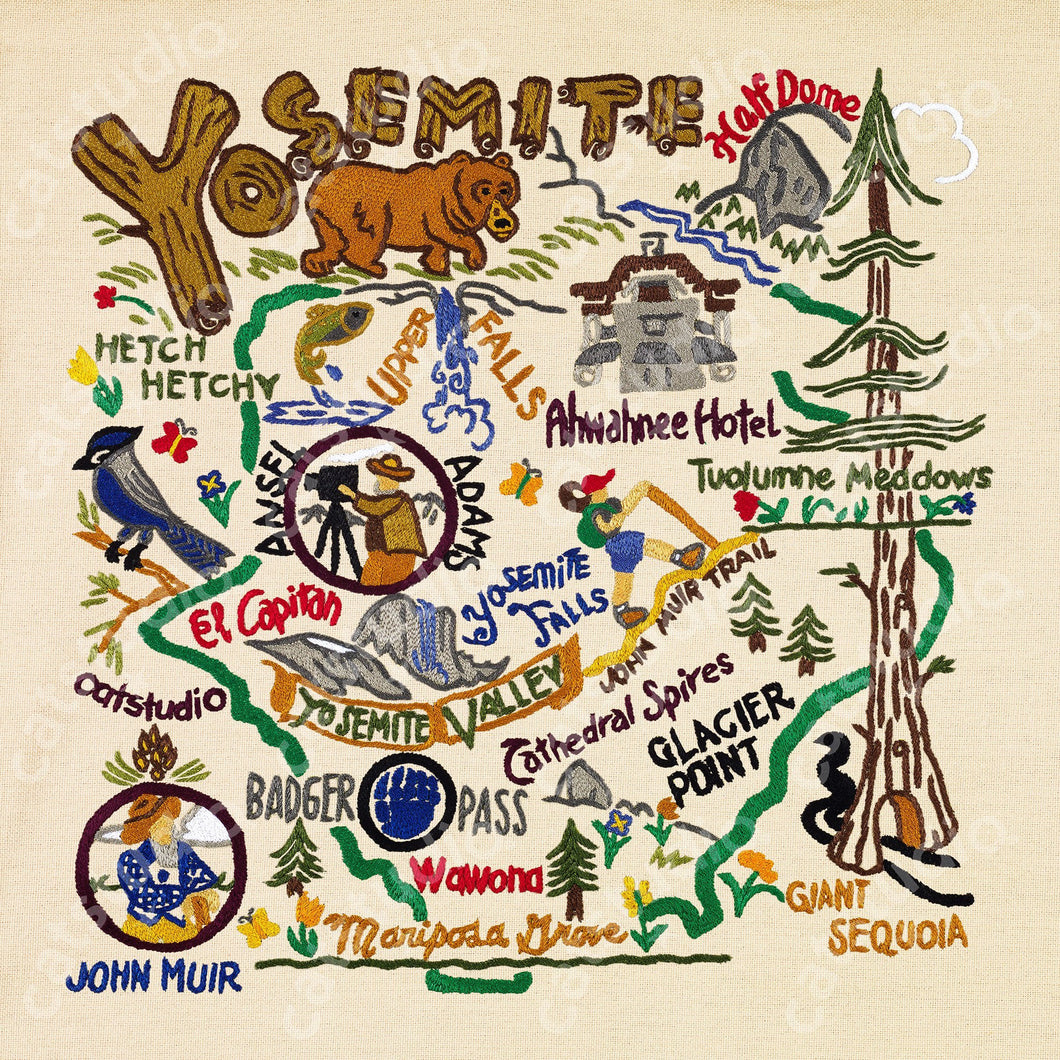 YOSEMITE
Half Dome
HETCH
HETCHY
UPPER
FALLS
Ahwahnee Hotel
Tuolumne Meadows
ANSEL
ADAMS
El Capitan
YOSEMITE
FALLS
JOHN MUIR TRAIL
catstudio
YOSEMITE VALLEY
Cathedral Spires
GLACIER
POINT
BADGER PASS
Wawona
Mariposa Grove
GIANT
SEQUOIA
JOHN MUIR
catstudio